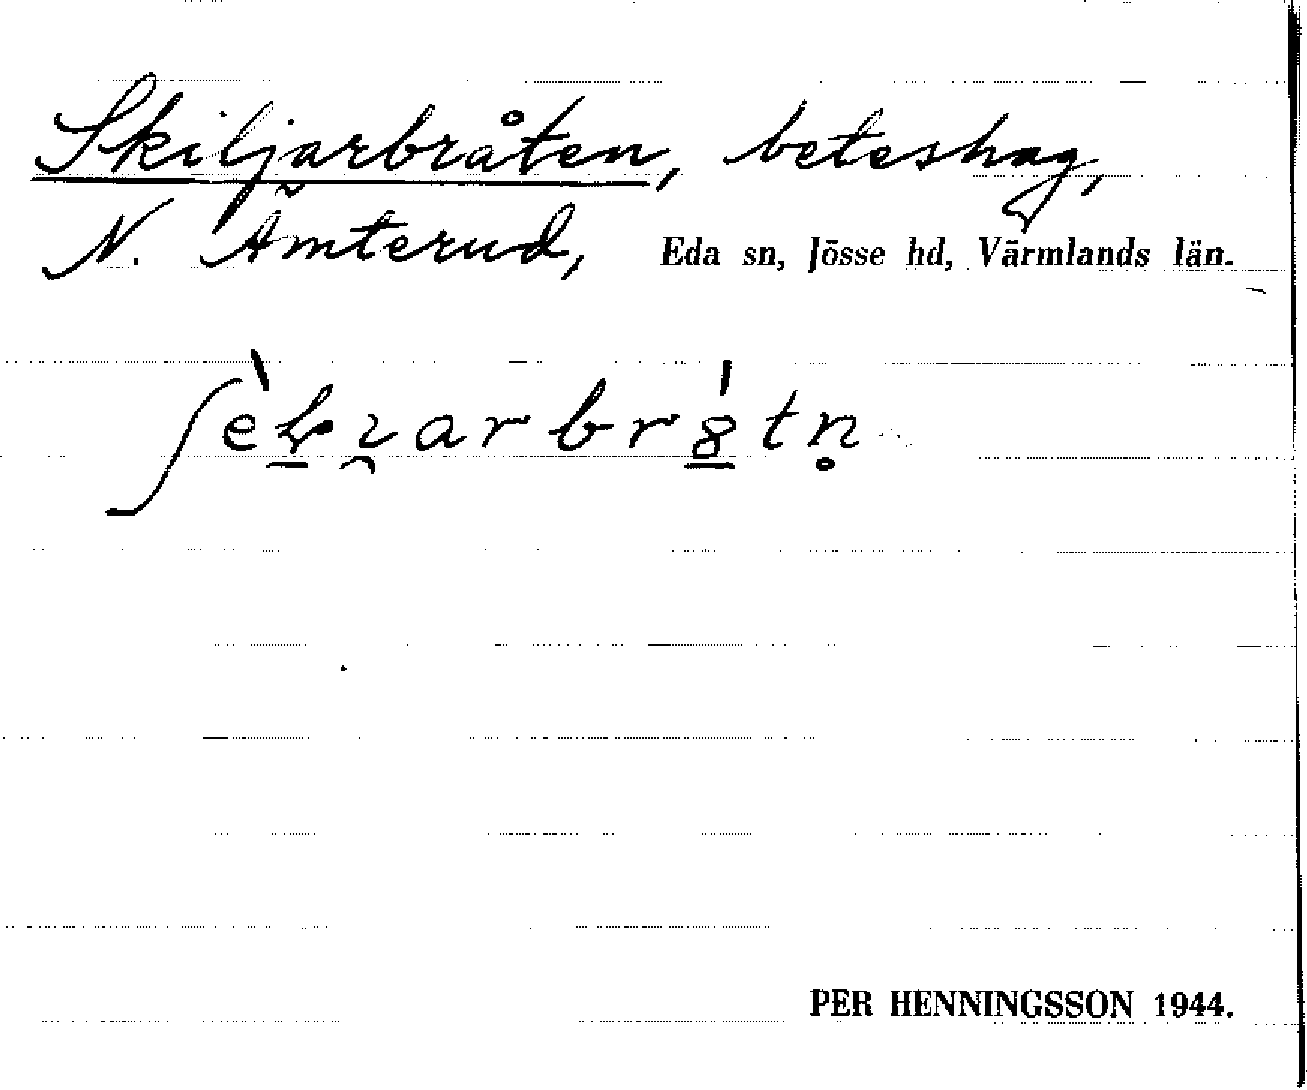 Skiljarbråten, beteshag,
N. Ämterud, Eda sn, Jösse hd, Värmlands län.
PER HENNINGSSON 1944.